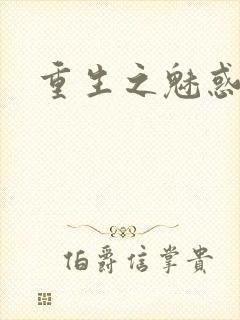 重生之魅惑
伯爵信掌贵